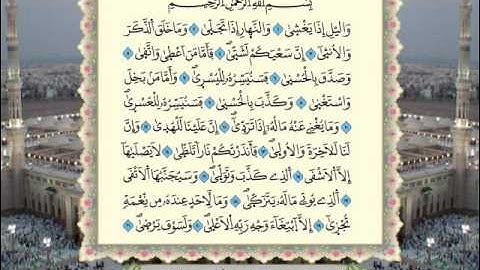 بِسْمِ اللَّهِ الرَّحْمَٰنِ الرَّحِيمِ
وَاللَّيْلِ إِذَا يَغْشَىٰ وَالنَّهَارِ إِذَا تَجَلَّىٰ وَمَا خَلَقَ الذَّكَرَ
وَالْأُنثَىٰ إِنَّ سَعْيَكُمْ لَشَتَّىٰ فَأَمَّا مَنْ أَعْطَىٰ وَاتَّقَىٰ
وَصَدَّقَ بِالْحُسْنَىٰ فَسَنُيَسِّرُهُ لِلْيُسْرَىٰ وَأَمَّا مَن بَخِلَ
وَاسْتَغْنَىٰ وَكَذَّبَ بِالْحُسْنَىٰ فَسَنُيَسِّرُهُ لِلْعُسْرَىٰ
وَمَا يُغْنِي عَنْهُ مَالُهُ إِذَا تَرَدَّىٰ إِنَّ عَلَيْنَا لَلْهُدَىٰ وَإِنَّ
لَنَا لَلْآخِرَةَ وَالْأُولَىٰ فَأَنذَرْتُكُمْ نَارًا تَلَظَّىٰ لَا يَصْلَاهَا
إِلَّا الْأَشْقَى الَّذِي كَذَّبَ وَتَوَلَّىٰ وَسَيُجَنَّبُهَا الْأَتْقَى
الَّذِي يُؤْتِي مَالَهُ يَتَزَكَّىٰ وَمَا لِأَحَدٍ عِندَهُ مِن نِّعْمَةٍ
تُجْزَىٰ إِلَّا ابْتِغَاءَ وَجْهِ رَبِّهِ الْأَعْلَىٰ وَلَسَوْفَ يَرْضَىٰ